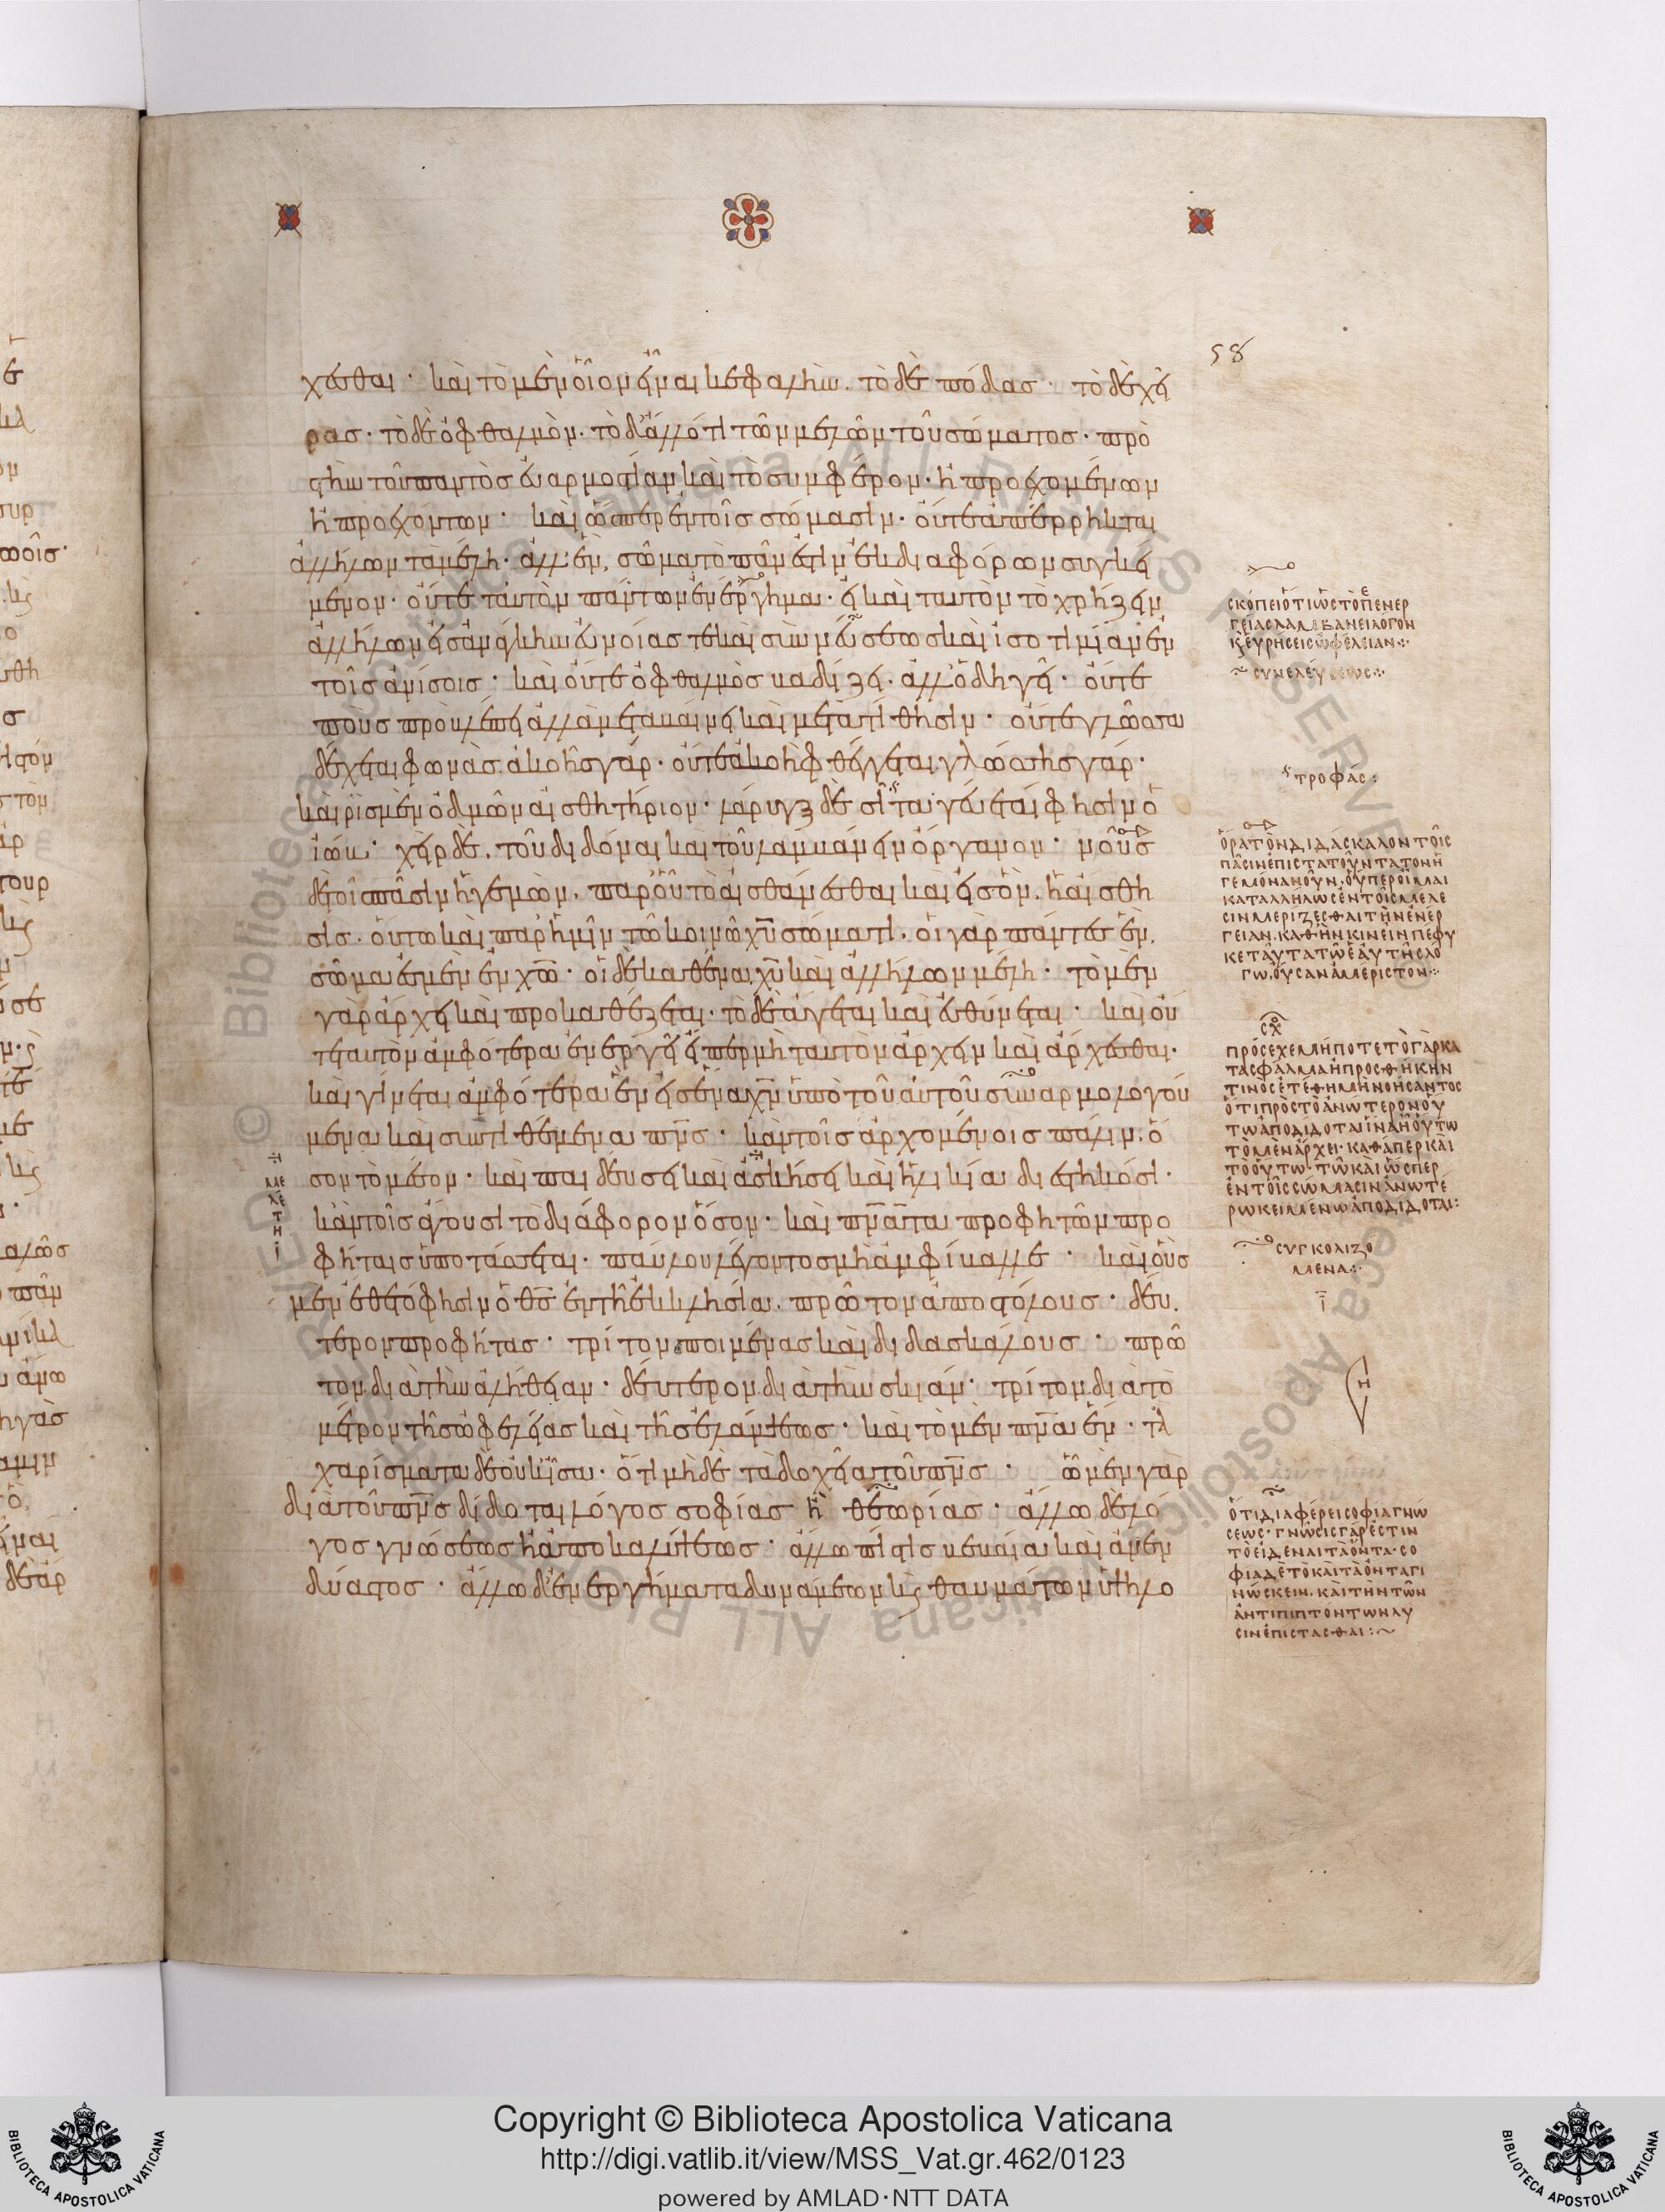 58
χεσθαι· καὶ τὸ μὲν οἷον εἶναι κεφαλὴν. τὸ δὲ πόδας· τὸ δὲ χεῖ
ρας· τὸ δὲ ὀφθαλμὸν· τὸ δ' ἄλλό τι τῶν μελῶν τοῦ σώματος· πρὸ
τὴν τοῦ παντὸς εὐαρμοστίαν καὶ τὸ συμφέρον· ἢ προεχομένων
ἢ προεχόντων· καὶ ὥσπερ ἐν τοῖς σώμασιν· οὔτε ἀπέρρηκται
ἀλλήλων τὰ μέλη· ἀλλ' ἓν σῶμα τὸ πᾶν ἐστὶν ἐκ διαφόρων συγκεί
μενον· οὔτε ταὐτὸν πάντων ἐνέργημα· εἰ καὶ ταυτὸν τὸ χρήζειν
ἀλλήλων εἰς ἀναγκὴν εὐνοίας τε καὶ συννεύσεως καὶ ἰσοτιμίαν ἐν
τοῖς ἀνίσοις· καὶ οὔτε ὀφθαλμὸς βαδίζει. ἀλλ' ὁδηγεῖ· οὔτε
ποὺς προβλέπει ἀλλὰ μεταβαίνει καὶ μετατίθησιν· οὔτε γλῶσσα
δέχεται φωνὰς. ἀκοῆς γάρ· οὔτε ἀκοὴ φθέγγεται, γλώσσης γάρ·
καὶ ρὶς μὲν ὀδμῶν αἰσθητήριον· λάρυγξ δὲ σῖτα γεύεται φησὶν ὁ
ἰώβ· χεὶρ δὲ. τοῦ διδόναι καὶ τοῦ λαμβάνειν ὄργανον· νοῦς
δὲ τοῖς πᾶσιν ἡγεμὼν. παρ' οὗ τὸ αἰσθάνεσθαι καὶ εἰς ὃν. ἡ αἴσθη
σις. οὕτω καὶ παρ' ἡμῖν τῶ κοινῶ χῡ σώματι. οἱ γὰρ πάντες ἓν
σῶμα ἐσμὲν ἐν χω̄· οἱ δὲ καθένα χῡ καὶ ἀλλήλων μέλη· τὸ μὲν
γὰρ ἄρχει καὶ προκαθέζεται. τὸ δὲ ἄγεται καὶ εὐθύνεται· καὶ οὐ
τε ταυτὸν ἀμφότερα ἐνεργεῖ εἴπερ μὴ ταυτὸν ἄρχειν καὶ ἄρχεσθαι·
καὶ γίνεται ἀμφότερα ἓν εἰς ἕνα χν̄ ὑπὸ τοῦ αὐτοῦ συναρμολογού
μενα καὶ συντιθέμενα πν̄ς· κἂν τοῖς ἀρχομένοις πάλιν. ὅ
σον τὸ μέσον· καὶ παιδεύσει καὶ ἀσκήσει καὶ ἡλικία διεστηκόσι·
κἂν τοῖς ἄγουσι τὸ διάφορον ὅσον· καὶ πν̄ατα προφητῶν προ
φήταις ὑποτάσσεται. παύλου λέγοντος μὴ ἀμφίβαλλε· καὶ οὓς
μὲν ἔθετο φησὶν ὁ θσ̄ ἐν τῆ ἐκκλησία. πρῶτον ἀποστόλους· δεύ
τερον προφήτας· τρίτον ποιμένας καὶ διδασκάλους· πρῶ
τον διὰ τὴν ἀλήθειαν· δεύτερον διὰ τὴν σκιάν· τρίτον διὰ τὸ
μέτρον τῆς ὠφελείας καὶ τῆς ἐλλάμψεως· καὶ τὸ μὲν πν̄α ἓν· τὰ
χαρίσματα δὲ οὐκ ἴσα· ὅτι μὴ δὲ τὰ δοχεῖα τοῦ πν̄ς· ὧ μὲν γὰρ
διὰ τοῦ πν̄ς δίδοται λόγος σοφίας ἢ θεωρίας· ἄλλω δὲ λό
γος γνώσεως ἢ ἀποκαλύψεως· ἄλλω πίστις βεβαία καὶ ἀνεν
δύαστος· ἄλλω δὲ ἐνεργήματα δυνάμεων κ(αὶ) θαυμάτων ὑψηλο
ΣΚΌΠΕΙ ὍΤΙ ὩΣ ΤῸ ΠΕΝΕΡ
ΓΕΊΑΣ ΛΑΜΒΑΝΕΙ ΛΌΓΟΝ
Κ(ΑΙ) ΕὙΡΉΣΕΙΣ ὨΦΈΛΕΙΑΝ:
ΣΥΝΕΛΕΎΣΕΩΣ:
ΤΡΟΦΆΣ:
ὍΡΑ ΤῸΝ ΔΙΔΆΣΚΑΛΟΝ ΤΟΙ͂Σ
ΠᾶΣΙΝ ἘΠΙΣΤΑΤΟΥ͂ΝΤΑ ΤΟΝ Ἡ
ΓΕΜΌΝΑ ΝΟΥ͂Ν. ΟὟΠΕΡ ΟἾΜΑΙ
ΚΑΤΑΛΛΉΛΩΣ ἘΝ ΤΟΙ͂Σ ΜΈΛΕ
ΣΙΝ ΜΕΡΊΖΕΣΘΑΙ ΤῊΝ ἘΝΈΡ
ΓΕΙΑΝ. ΚΑΘ' ἫΝ ΚΙΝΕΙ͂Ν ΠΈΦΥ
ΚΕ ΤΑΥ͂ΤΑ ΤΩ͂ ἙΑΥΤΗ͂Σ ΛΌ
ΓΩ, ΟὖΣΑΝ ἈΜΈΡΙΣΤΟΝ:
ΣΧ
ΠΡΌΣΕΧΕ ΜΉΠΟΤΕ ΤῸ ΓᾺΡ ΚΑ
ΤᾺ ΣΦΆΛΜΑ Ἢ ΠΡΟΣΘΉΚΗΝ
ΤΙΝΟΣ ἘΤΈΘΗ ΜῊ ΝΟΉΣΑΝΤΟΣ
ὍΤΙ ΠΡῸΣ ΤῸ ἈΝΏΤΕΡΟΝ ΟὝ
ΤΩ ἈΠΟΔΊΔΟΤΑΙ ἽΝΑ Ἦ ΟὝΤΩ
ΤῸ ΜῈΝ ἌΡΧΕΙ· ΚΑΘΆΠΕΡ ΚΑῚ
ΤῸ ΟὝΤΩ· ΤΩ͂ ΚΑῚ ὭΣΠΕΡ
ἘΝ ΤΟΙ͂Σ ΣΏΜΑΣΙΝ ἈΝΩΤΈ
ΡΩ ΚΕΙΜΈΝΩ ἈΠΟΔΊΔΟΤΑΙ:
ΣΥΓΚΟΛΙΖΌ
ΜΕΝΑ:
ΜΕ
ΛΈ
Τ
Η
Ι
ὍΤΙ ΔΙΑΦΈΡΕΙ ΣΟΦΊΑ ΓΝΏ
ΣΕΩΣ· ΓΝΩ͂ΣΙΣ ΓΆΡ ἘΣΤΙΝ
ΤῸ ΕἸΔΈΝΑΙ ΤᾺ ὌΝΤΑ· ΣΟ
ΦΊΑ ΔῈ ΤῸ ΚΑῚ ΤᾺ ὌΝΤΑ ΓΙ
ΝΏΣΚΕΙΝ. ΚΑῚ ΤῊΝ ΤΩ͂Ν
ἈΝΤΙΠΙΠΤΌΝΤΩΝ ΛΎ
ΣΙΝ ἘΠΊΣΤΑΣΘΑΙ:
Copyright © Biblioteca Apostolica Vaticana
http://digi.vatlib.it/view/MSS_Vat.gr.462/0123
powered by AMLAD·NTT DATA
BIBLIOTECA APOSTOLICA VATICANA
BIBLIOTECA APOSTOLICA VATICANA